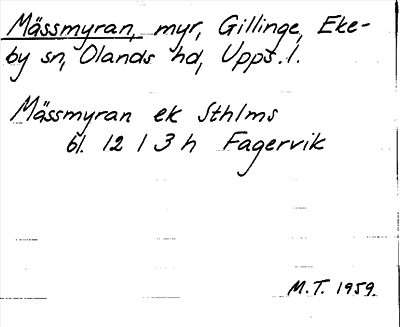 Mässmyran, myr, Gillinge, Eke-
by sn, Olands hd, Upps. l.
Mässmyran ek Sthlms
bl. 12 1 3 h Fagervik
M.T. 1959.